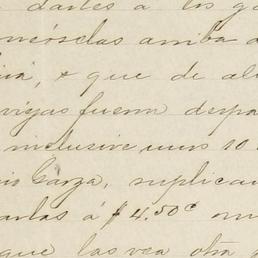 darles á los ga
oneóselas arriba d
ina, & que de al
vigas fueron despa
inclusive unos 10
is Garza, suplican
arlas á $4.50c on
que las vea otra p